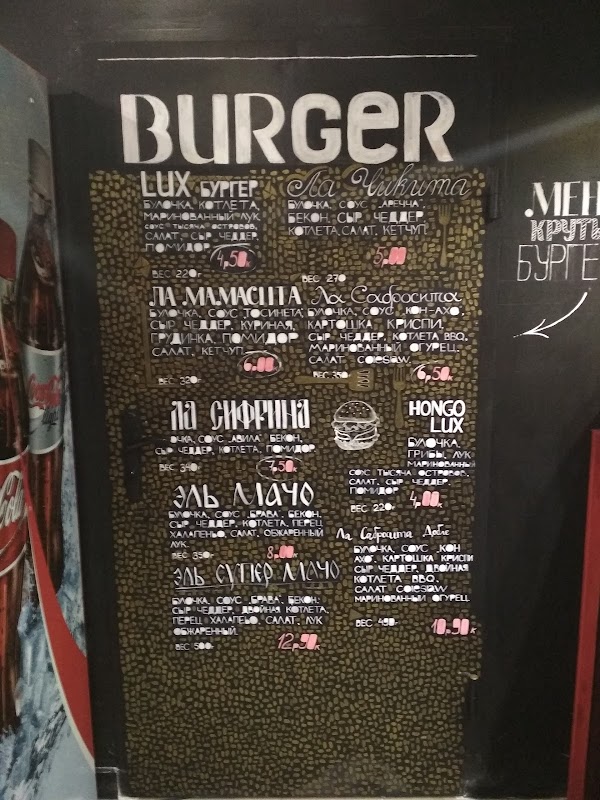 BURGER
LUX БУРГЕР
БУЛОЧКА, КОТЛЕТА,
МАРИНОВАННЫЙ ЛУК
СОУС ТЫСЯЧА ОСТРОВОВ,
САЛАТ, СЫР ЧЕДДЕР,
ПОМИДОР
4,50к
ВЕС 220г
Ла Чикита
БУЛОЧКА, СОУС "АРЕЧЧА",
БЕКОН, СЫР ЧЕДДЕР,
КОТЛЕТА, САЛАТ, КЕТЧУП
5,00
ВЕС 270
ЛА МАМАСИТА
БУЛОЧКА, СОУС "ТОСИНЕТА"
СЫР ЧЕДДЕР, КУРИНАЯ
ГРУДИНКА, ПОМИДОР
САЛАТ, КЕТЧУП
6,00
ВЕС 320г
Ла Сабросита
БУЛОЧКА, СОУС КОН-АХО,
КАРТОШКА КРИСПИ,
СЫР ЧЕДДЕР, КОТЛЕТА BBQ,
МАРИНОВАННЫЙ ОГУРЕЦ
САЛАТ COLESLAW
ВЕС 350г
6,50к
ЛА СИФРИНА
ОЧКА, СОУС "АВИЛА", БЕКОН,
СЫР ЧЕДДЕР, КОТЛЕТА, ПОМИДОР
ВЕС 340
7,50к
HONGO
LUX
БУЛОЧКА,
ГРИБЫ, ЛУК
МАРИНОВАННЫЙ
СОУС ТЫСЯЧА ОСТРОВОВ,
САЛАТ, СЫР ЧЕДДЕР,
ПОМИДОР
4,00к
ВЕС 220г
ЭЛЬ МАЧО
БУЛОЧКА, СОУС "БРАВА", БЕКОН,
СЫР ЧЕДДЕР, КОТЛЕТА, ПЕРЕЦ
ХАЛАПЕНЬО, САЛАТ, ОБЖАРЕННЫЙ
ЛУК
ВЕС 350г
8,00к
Ла Сабросита Добле
БУЛОЧКА, СОУС "КОН
АХО", КАРТОШКА КРИСПИ
СЫР ЧЕДДЕР, ДВОЙНАЯ
КОТЛЕТА BBQ,
САЛАТ COLESLAW
МАРИНОВАННЫЙ ОГУРЕЦ
ВЕС 490г
10,90к
ЭЛЬ СУПЕР МАЧО
БУЛОЧКА, СОУС "БРАВА", БЕКОН,
СЫР ЧЕДДЕР, ДВОЙНАЯ КОТЛЕТА,
ПЕРЕЦ ХАЛАПЕНЬО, САЛАТ, ЛУК
ОБЖАРЕННЫЙ
ВЕС 500г
12,90к
МЕН
КРУТ
БУРГЕ